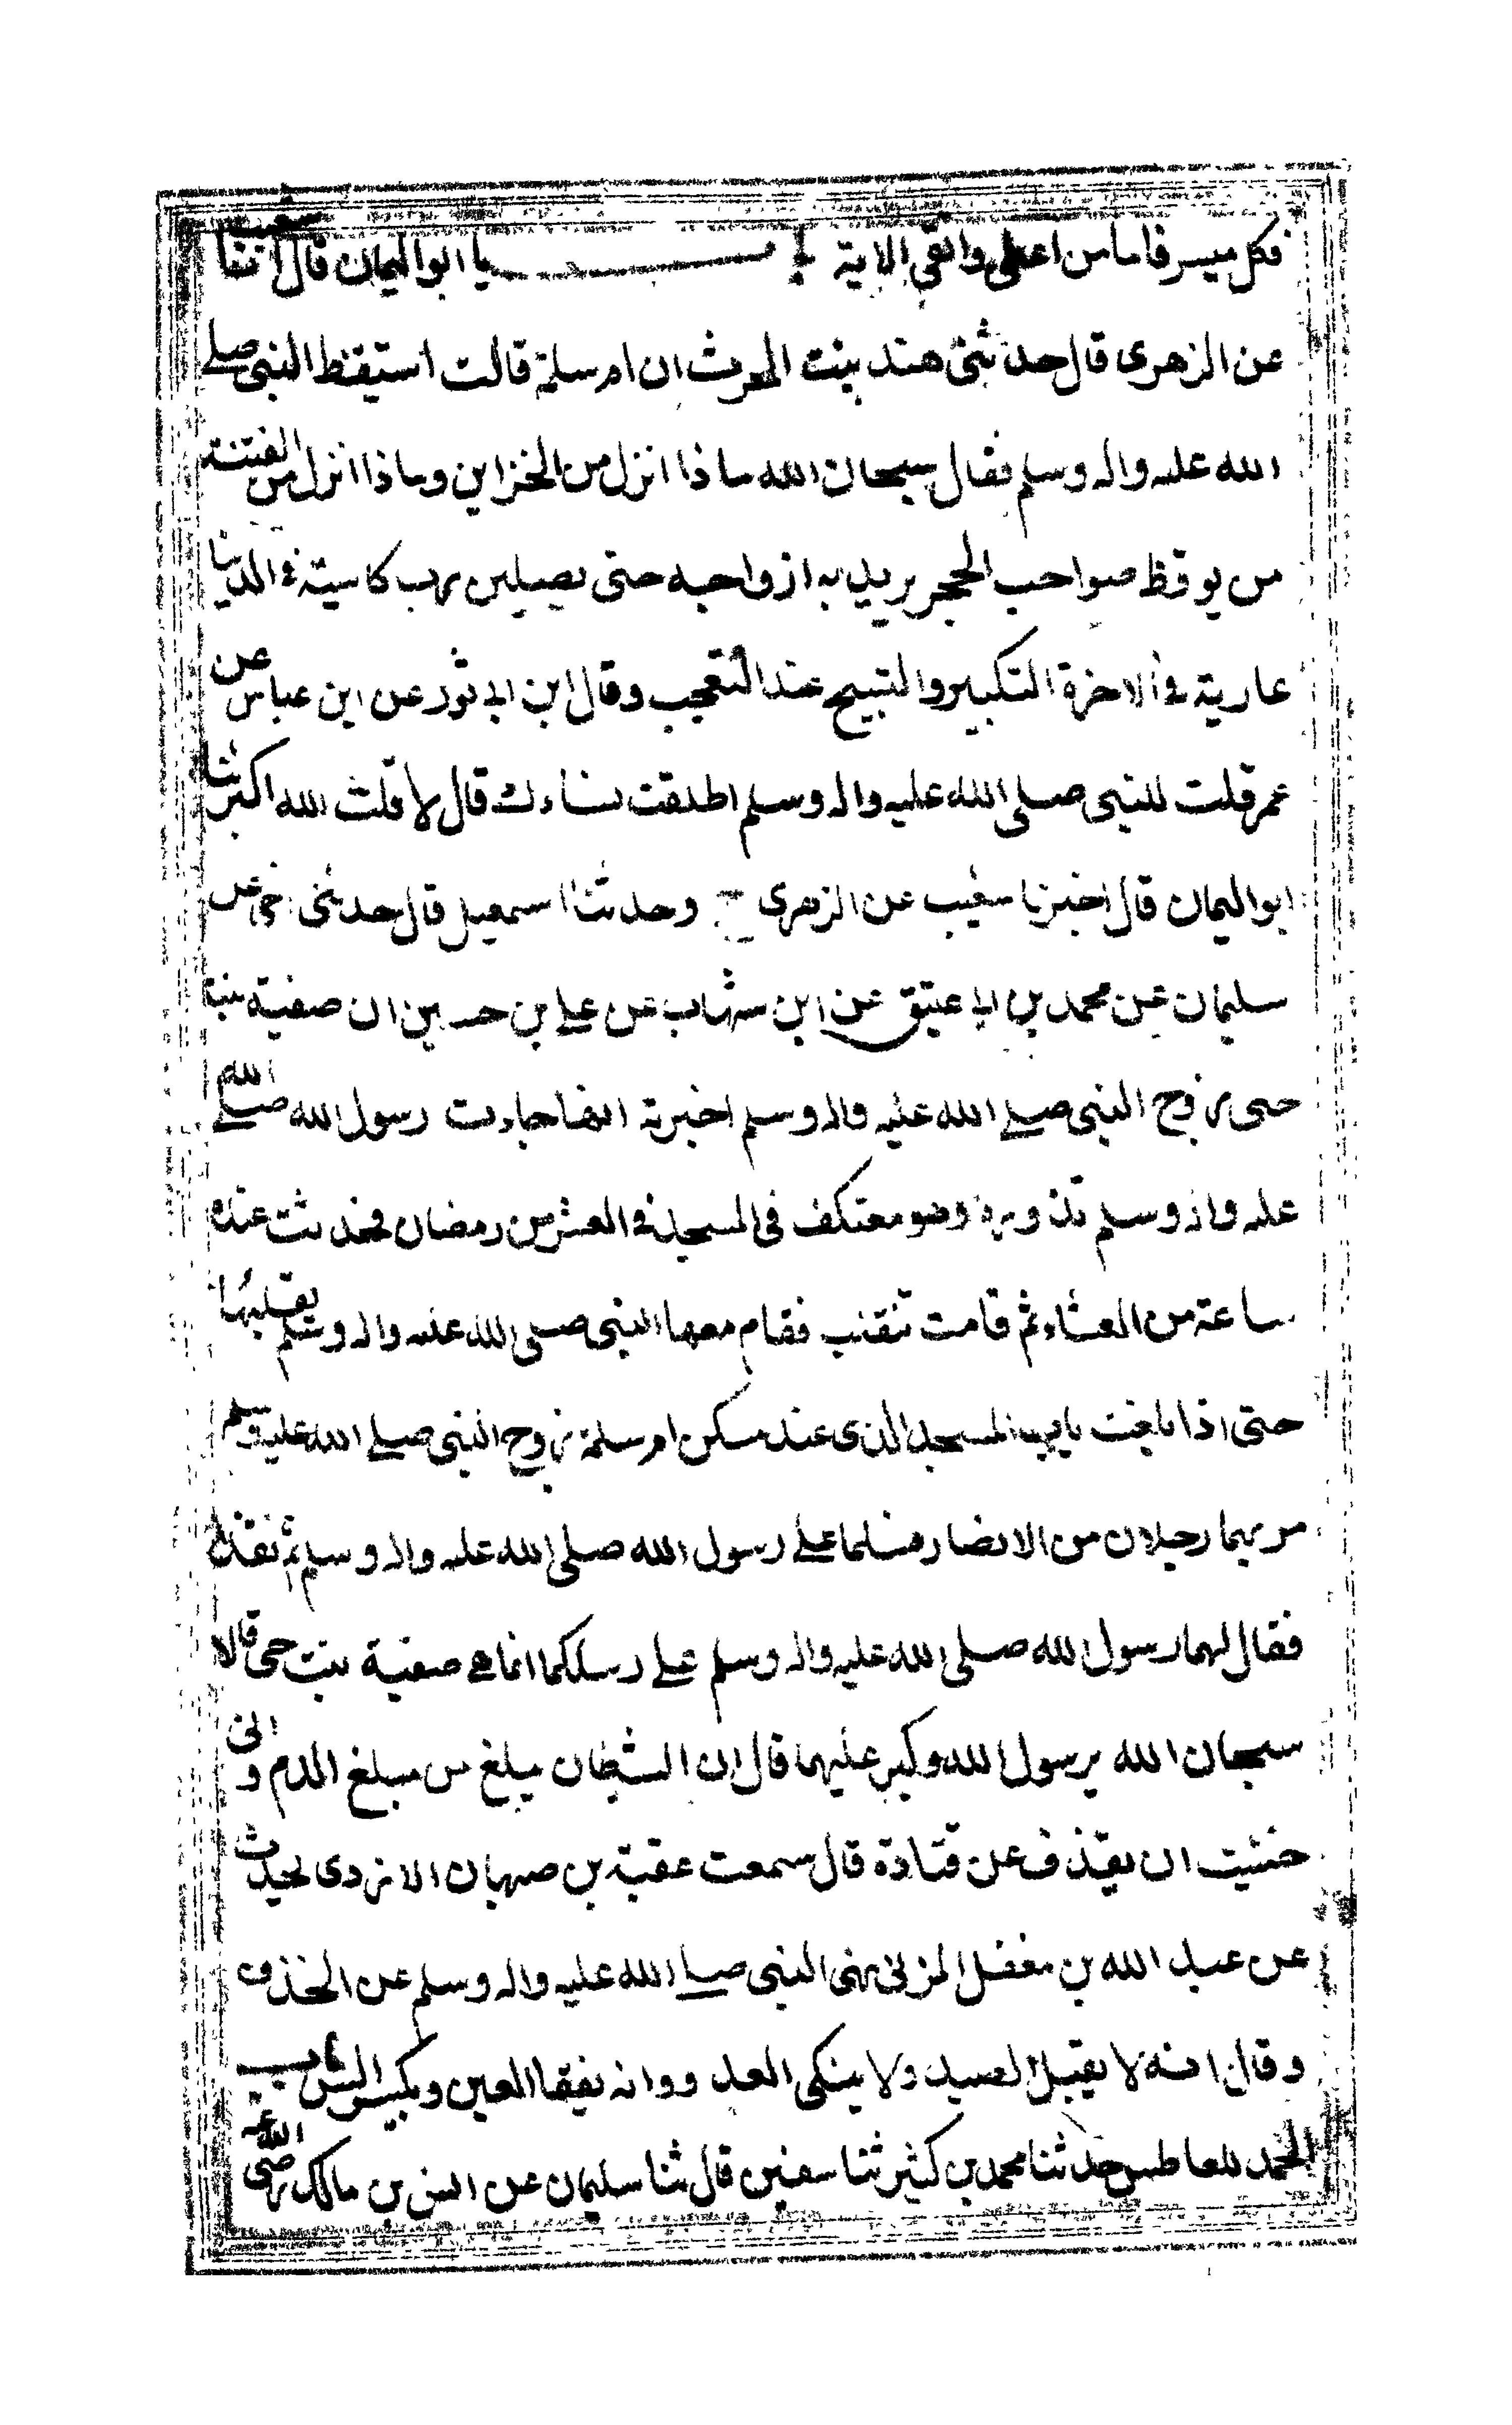 فكل ميسر فاما من اعطى واتقى الاية يا ابو اليمان قال انبئنا شعيب
عن الزهرى قال حدثنى هند بنت الحرث ان ام سلمة قالت استيقظ النبى صلى
الله عليه واله وسلم فقال سبحان الله ماذا انزل من الخزاين وماذا انزل من الفتنة
من يوقظ صواحب الحجر يريد به ازواجه حتى يصلين رب كاسية فى الدنيا
عارية فى الاخرة التكبير والتسبيح عند التعجب وقال ابن ابى ثور عن ابن عباس عن
عمر قلت للنبى صلى الله عليه واله وسلم اطلقت نساءك قال لا قلت الله اكبر ثنا
ابو اليمان قال اخبرنا شعيب عن الزهرى ح وحدثنا اسمعيل قال حدثنى اخى عن
سليمان عن محمد بن ابى عتيق عن ابن شهاب عن على بن حسين ان صفية بنت
حيى زوج النبى صلى الله عليه واله وسلم اخبرته انها جاءت رسول الله صلى الله
عليه واله وسلم تزوره وهو معتكف فى المسجد فى العشر من رمضان فتحدثت عنده
ساعة من العشاء ثم قامت تنقلب فقام معها النبى صلى الله عليه واله وسلم يقلبها
حتى اذا بلغت باب المسجد الذى عند مسكن ام سلمة زوج النبى صلى الله عليه وسلم
مر بهما رجلان من الانصار فسلما على رسول الله صلى الله عليه واله وسلم ثم نفذا
فقال لهما رسول الله صلى الله عليه واله وسلم على رسلكما انما هى صفية بنت حيى قالا
سبحان الله يرسول الله وكبر عليهما قال ان الشيطان يبلغ من مبلغ الدم و انى
خشيت ان يقذف عن قتادة قال سمعت عقبة بن صهبان الازدى يحدث
عن عبد الله بن مغفل المزنى نهى النبى صلى الله عليه واله وسلم عن الخذف
وقال انه لا يقتل الصيد ولا ينكى العدو وانه يفقا العين ويكسر السن باب
الحمد للعاطس حدثنا محمد بن كثير ثنا سفين قال ثنا سليمان عن انس بن مالك رضى الله عنه